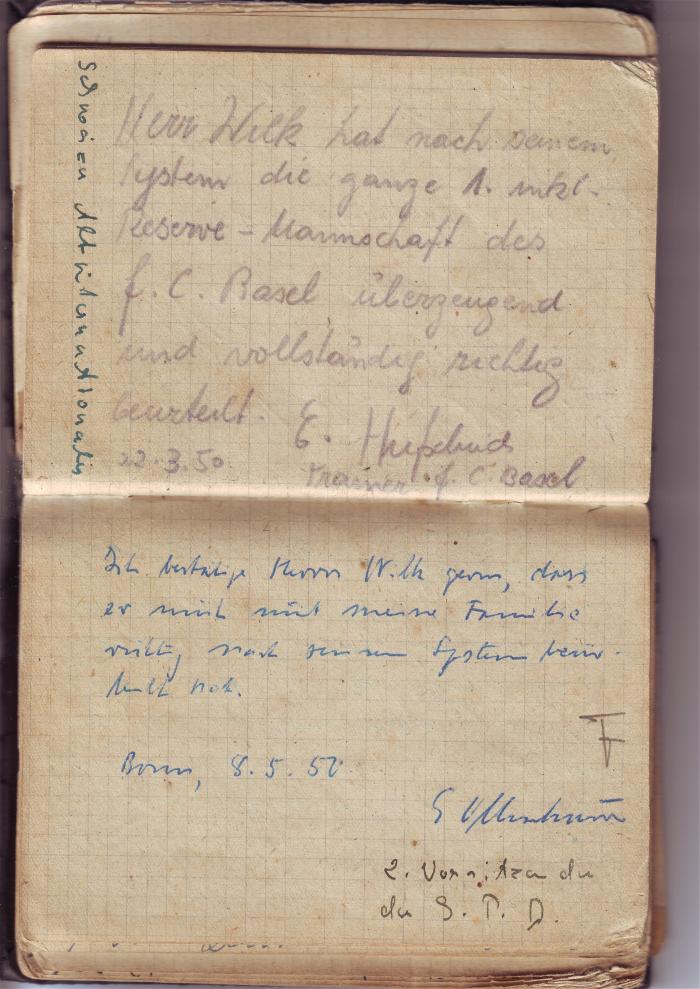 Schweizer Altinternationaler
Herr Wilk hat nach seinem
System die ganze 1. inkl.
Reserve - Mannschaft des
F. C. Basel überzeugend
und vollständig richtig
beurteilt. E. Hufschmid
22.3.50 Trainer F. C. Basel
Ich bestätige Herrn Wilk gern, dass
er mich und meine Familie
richtig nach seinem System beur-
teilt hat.
F
Bonn, 8. 5. 52
E Ollenhauer
2. Vorsitzender
der S. P. D.